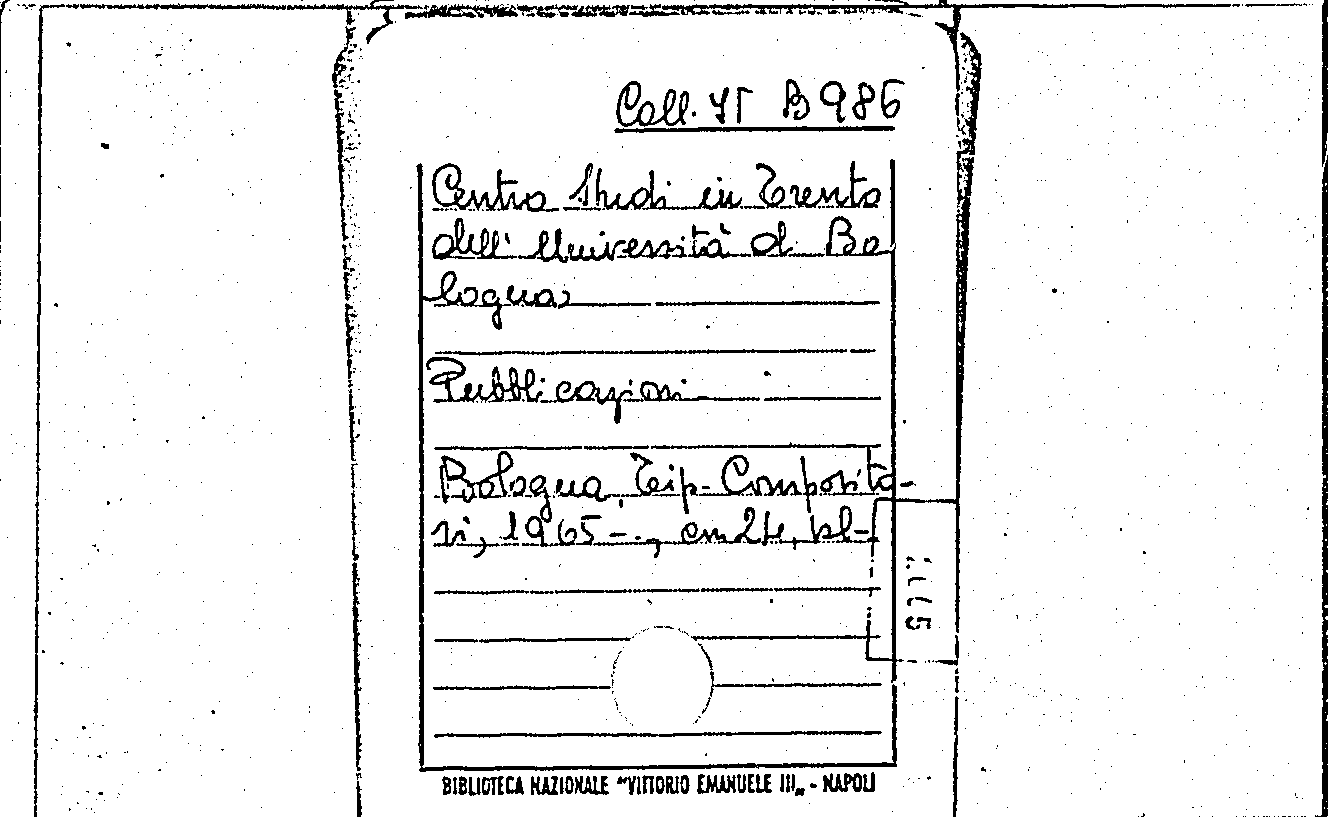 Coll. It B 986
Centro Studi in Trento
dell' Università d Bo
logna
Pubblicazioni
Bologna, Tip. Composito-
ri, 1965-., cm 24, bl-
BIBLIOTECA NAZIONALE "VITTORIO EMANUELE III„ - NAPOLI